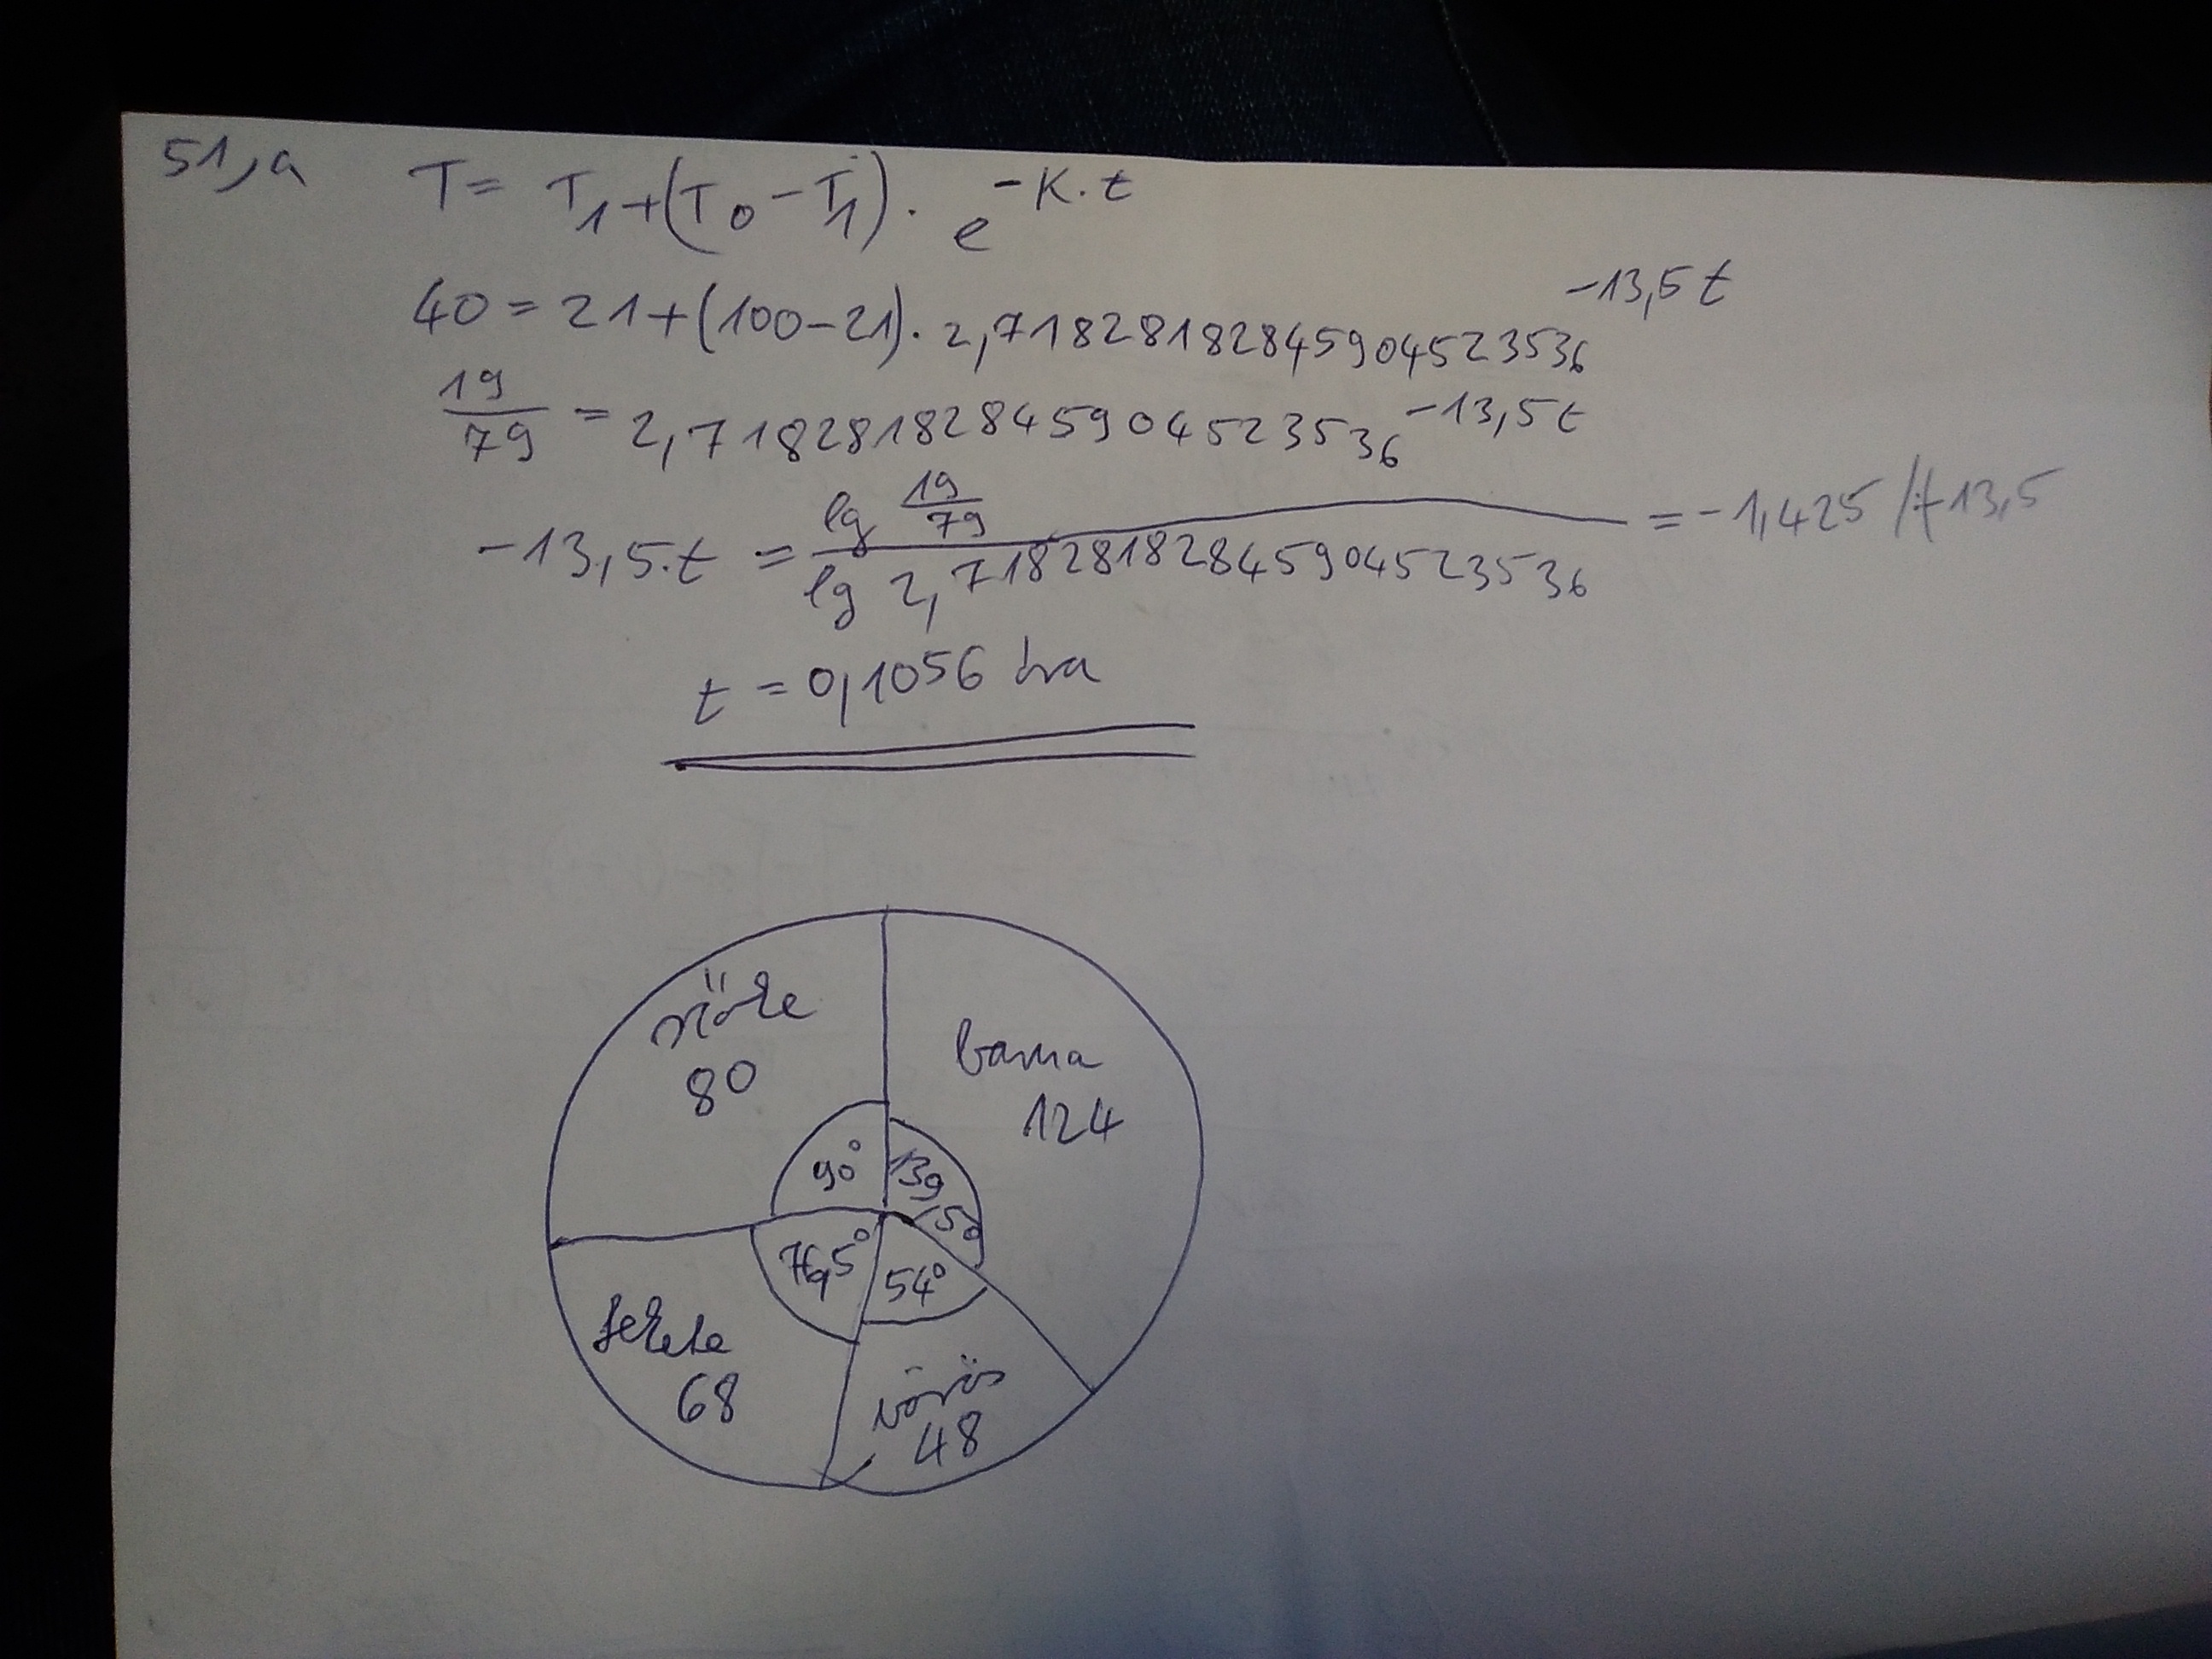 51,a T = T₁+(T₀-T₁). e^-K.t
40 = 21+(100-21). 2,71828182845904523536^-13,5t
19/79 = 2,71828182845904523536^-13,5t
-13,5.t = lg 19/79 / lg 2,71828182845904523536 = -1,425 /:-13,5
t = 0,1056 óra
szőke
80
barna
124
90°
139,5°
76,5°
54°
fekete
68
vörös
48